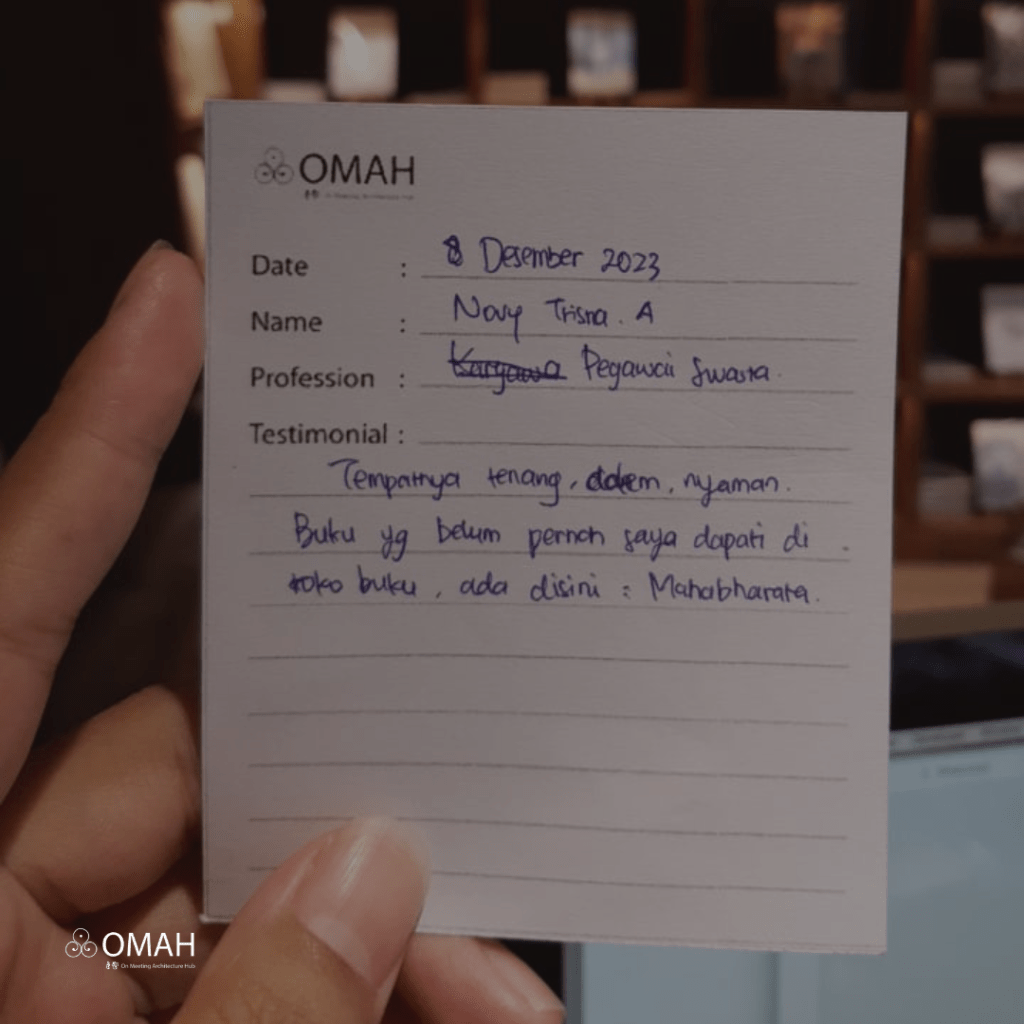 OMAH
On Meeting Architecture Hub
Date : 8 Desember 2023
Name : Novy Trisna. A
Profession : Pegawai Swasta.
Testimonial :
Tempatnya tenang, adem, nyaman.
Buku yg belum pernah saya dapati di
toko buku, ada disini : Mahabharata.
OMAH
On Meeting Architecture Hub